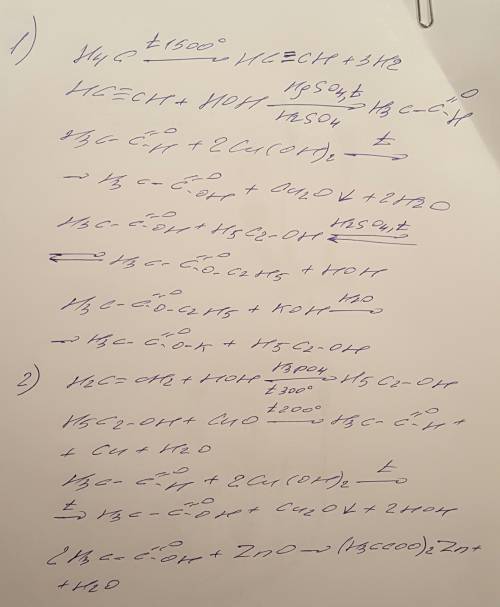 1)
H4C t 1500° → HC≡CH + 3H2
HC≡CH + HOH HgSO4, t / H2SO4 → H3C-C(=O)-H
H3C-C(=O)-H + 2Cu(OH)2 t →
→ H3C-C(=O)-OH + Cu2O↓ + 2H2O
H3C-C(=O)-OH + H5C2-OH H2SO4, t ⇄
⇄ H3C-C(=O)-O-C2H5 + HOH
H3C-C(=O)-O-C2H5 + KOH H2O →
→ H3C-C(=O)-O-K + H5C2-OH
2) H2C=CH2 + HOH H3PO4 / t 300° → H5C2-OH
H5C2-OH + CuO t 200° → H3C-C(=O)-H +
+ Cu + H2O
H3C-C(=O)-H + 2Cu(OH)2 t →
t → H3C-C(=O)-OH + Cu2O↓ + 2HOH
2H3C-C(=O)-OH + ZnO → (H3CCOO)2Zn +
+ H2O